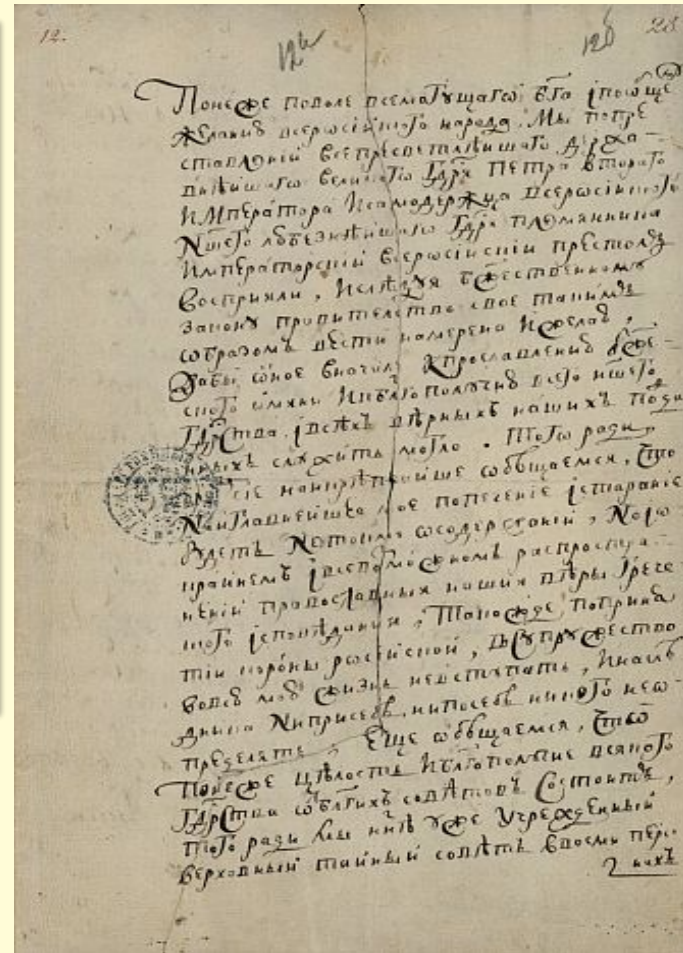 12.
12а
12б
23
Понеже поволе всемогущаго бга iпообще
желанию всеросiйского народа. Мы попре
ставленiи всепресветлѣйшаго держа-
внѣйшаго великого Гдря Петра второго
Императора Исамодержца всеросiйского
Ншего любезнѣйшаго Гдря племянника
Императорскiй всеросiйскiй престолъ
восприяли, Ислѣдуя бжественному
закону правителство свое такимъ
образомъ вести намерена Ижелаю,
Дабы оное вначалѣ кпрославленiю бже-
ского имяни Икблгополучию всего ншего
Гдрства, iвсѣхъ вѣрныхъ нашихъ подда
нныхъ служить могло. Того ради,
чрезсiе наикрѣпчайше обѣщаемся, что
Наиглавнейшее мое попеченiе iстаранiе
будетъ Нетокмо осодержанiи, Ноiо
крайнемъ iвсевозможномъ распростра-
ненiи православныя нашея вѣры грече
ского iсповѣдания, Такожде, поприня
тiи короны росiйской, Всупружество
вовсю мою жизнь невступать, Инаслѣ
дника Ниприсебѣ, нипосебѣ никого нео
пределять, Еще обѣщаемся, что
Понеже цѣлость Иблгополучие всякого
Гдрства отблгихъ совѣтовъ Состоитъ,
Того ради мы ннѣ уже Учрежденный
верховный тайный совѣтъ ввосми персо
нахъ